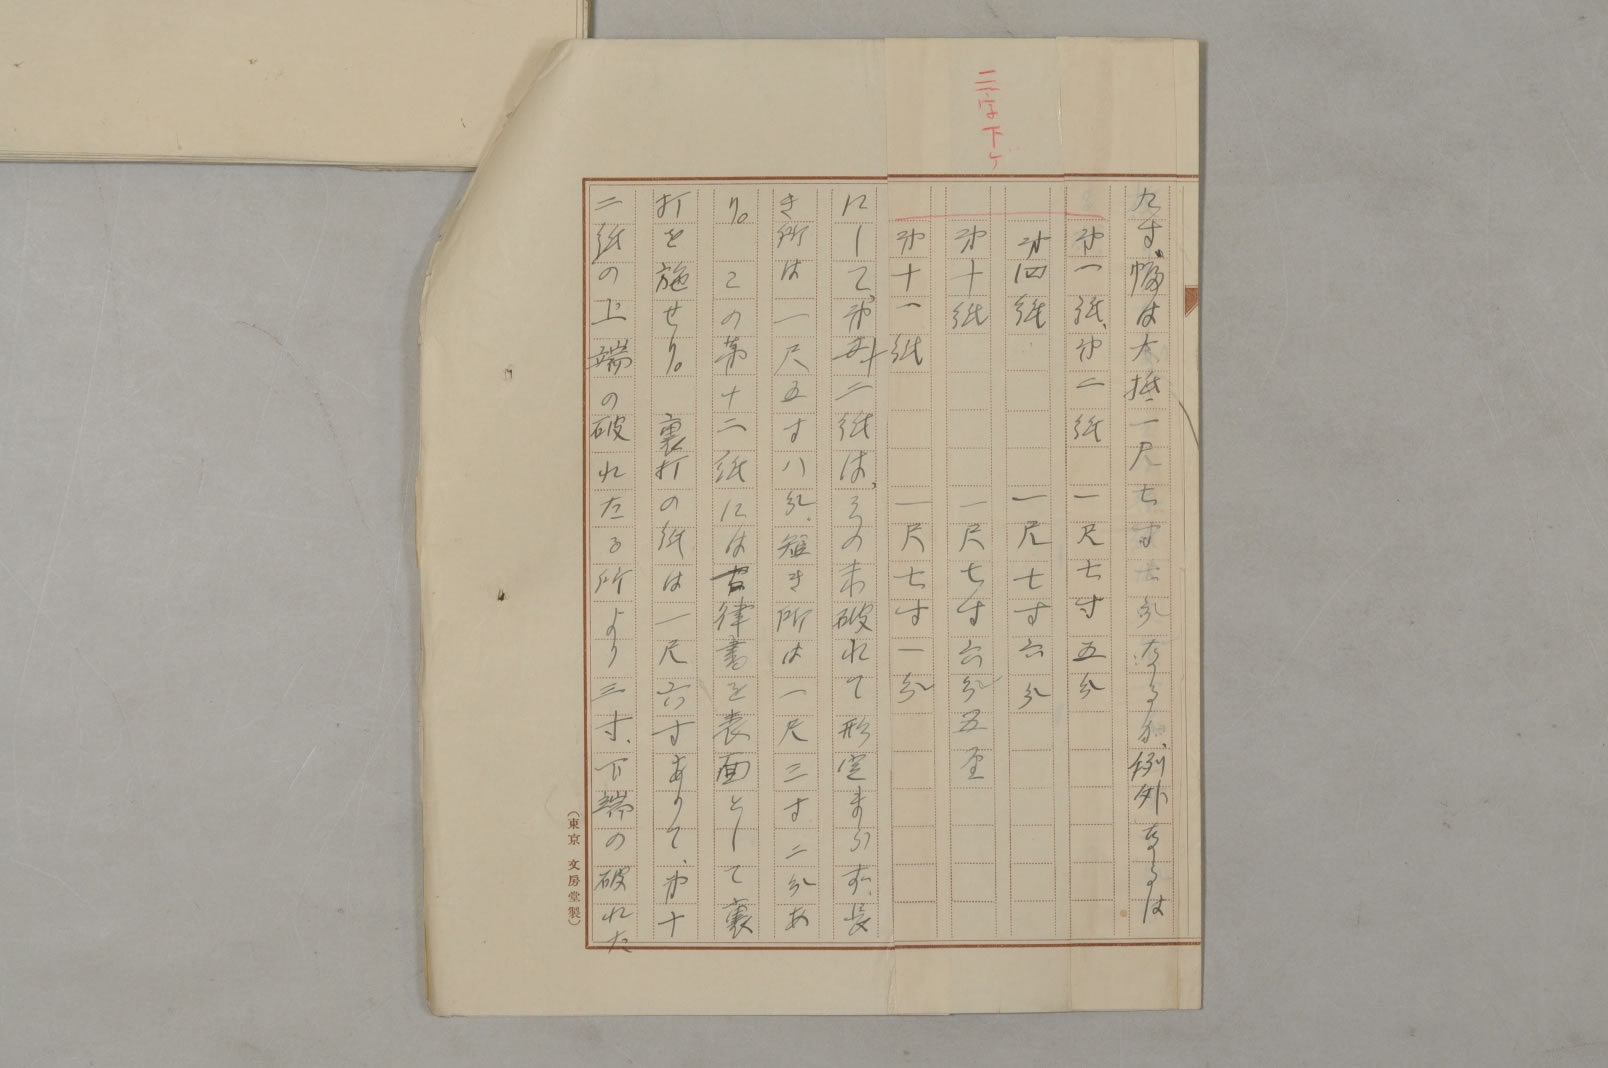 二字下ゲ
九寸。幅は大抵一尺七寸七分なるが、例外なるは
第一紙、第二紙　一尺七寸五分
第四紙　一尺七寸六分
第十紙　一尺七寸六分五厘
第十一紙　一尺七寸一分
にして、第十二紙は、その末破れて形定まらず、長
き所は一尺五寸八分、短き所は一尺三寸二分あ
り。この第十二紙には律書を表面として裏
打を施せり。裏打の紙は一尺六寸ありて、第十
二紙の上端の破れたる所より三寸、下端の破れた
（東京 文房堂製）